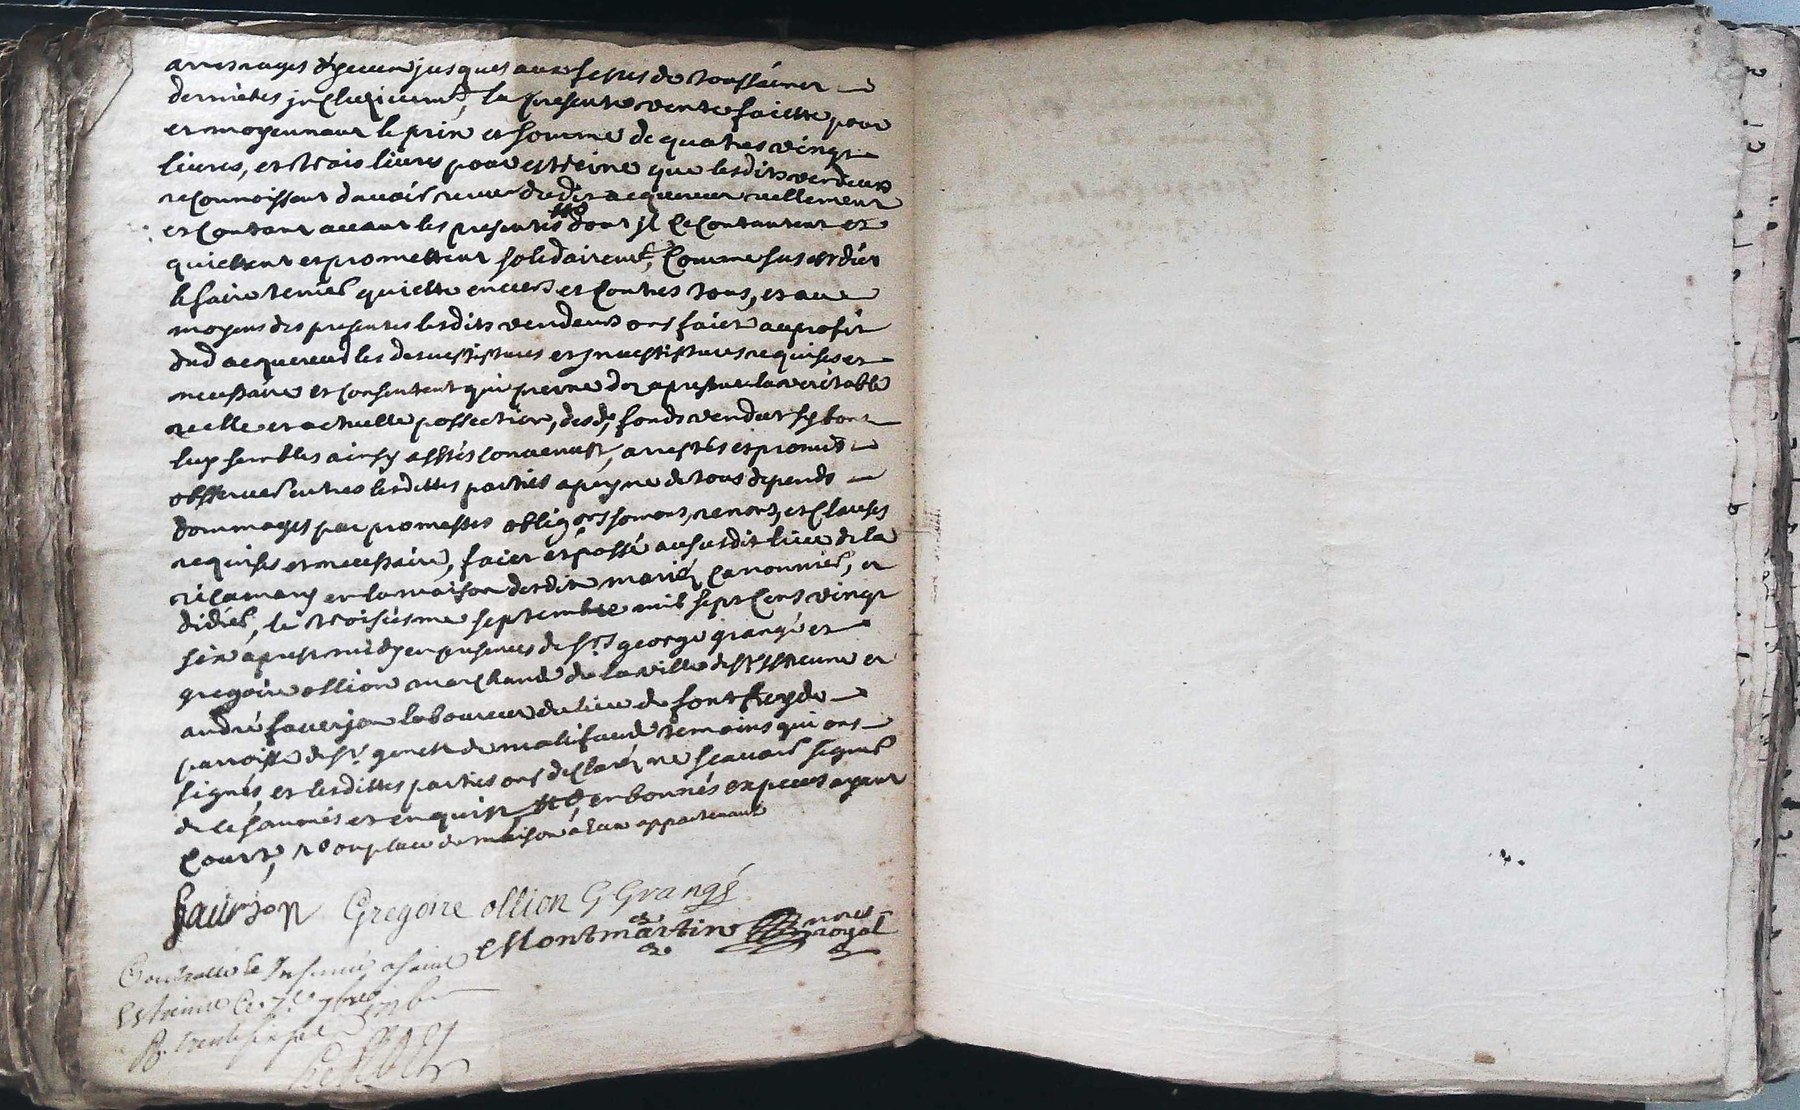 arrerages & jusques aux festes de toussainct
dernieres jnclusivemt, la presente vente faicte pour
et moyennant le prix et somme de quatres vingt
livres, et trois livres pour estreine que lesdits vendeurs
reconnoissent davoir receu dudit acquereur reellement
et contant avant les presentes dont jl se contantent et
quictent et promettent solidairemt, comme sus est dict
le faire tenir quicte envers et contres tous, et au
moyens des presentes lesdits vendeurs ont faict au profit
dud acquereur les desvestistures et jnvestistures requises et
necessaire et consentent qui prenne dor apresent la veritable
reelle et actuelle possection, desd fonds vendus
ainsy convenus, arrestés et promis
observer entres lesdittes parties apeyne de tous depends
dommages par promesses obligons soments, renons, et clauses
requises et necessaire, faict et passé au susdit lieu de la
ricamary en la maison desdits mariés carronnier, et
didier, le troisiesme septembre mil sept cens vingt
six apres midy en presences de srs george grangé et
gregoire ollion marchands de la ville de st estienne et
andré faverjon laboureur du lieu de font freyde
parroisse de st genest de malifaud temoins qui ont
signés, et lesdittes parties ont declarés ne scavoir signer
de ce sommés et enquis, en bonnes expeces ayant
court, ou place de maison à eux appartenant
faverjon Gregoire ollion G Grangé
Montmartin nore royal
Controllé & Insinué a saint
Estienne le 7e 7bre 1726
R. trente six sols